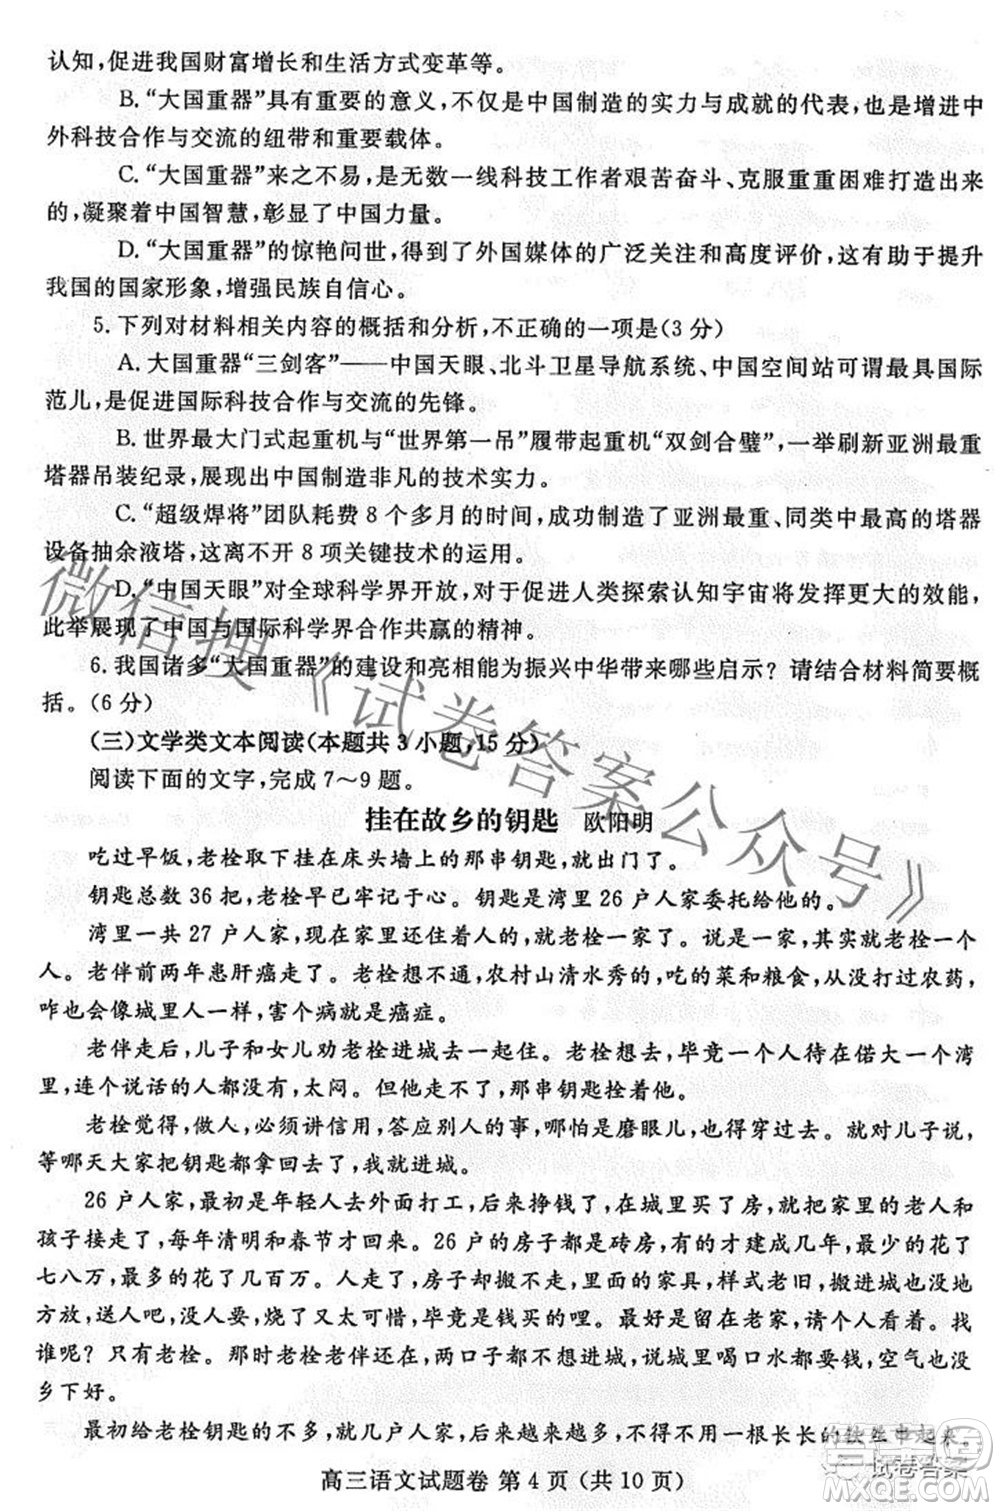 认知,促进我国财富增长和生活方式变革等。
B.“大国重器”具有重要的意义,不仅是中国制造的实力与成就的代表,也是增进中
外科技合作与交流的纽带和重要载体。
C.“大国重器”来之不易,是无数一线科技工作者艰苦奋斗、克服重重困难打造出来
的,凝聚着中国智慧,彰显了中国力量。
D.“大国重器”的惊艳问世,得到了外国媒体的广泛关注和高度评价,有助于提升
我国的国家形象,增强民族自信心。
5.下列对材料相关内容的概括和分析,不正确的一项是(3分)
A.大国重器“三剑客”——中国天眼、北斗卫星导航系统、中国空间站可谓最具国际
范儿,是促进国际科技合作与交流的先锋。
B.世界最大门式起重机与“世界第一吊”履带起重机“双剑合璧”,一举刷新亚洲最重
塔器吊装纪录,展现出中国制造非凡的技术实力。
C.“超级焊将”团队耗费8个多月的时间,成功制造了亚洲最重、同类中最高的塔器
设备抽余液塔,这离不开8项关键技术的运用。
D.“中国天眼”对全球科学界开放,对于促进人类探索认知宇宙将发挥更大的效能,
此举展现了中国与国际科学界合作共赢的精神。
6.我国诸多“大国重器”的建设和亮相能为振兴中华带来哪些启示?请结合材料简要概
括。(6分)
(三)文学类文本阅读(本题共3小题,15分)
阅读下面的文字,完成7～9题。
挂在故乡的钥匙 欧阳明
吃过早饭,老栓取下挂在床头墙上的那串钥匙,就出门了。
钥匙总数36把,老栓早已牢记于心。钥匙是湾里26户人家委托给他的。
湾里一共27户人家,现在还住着人的,就老栓一家了。说是一家,其实就老栓一个
人。老伴前两年患肝癌走了。老栓想不通,农村山清水秀的,吃的菜和粮食,没打过农药,
咋也会像城里人一样,害个病就是癌症。
老伴走后,儿子和女儿劝老栓进城去一起住。老栓想去,毕竟一个人待在偌大一个湾
里,连个说话的人都没有,太闷。但他走不成,那串钥匙拴住了他。
老栓觉得,做人,必须讲信用,答应别人的事,哪怕是磨眼儿,也得穿过去。就对儿子说,
等哪天大家把钥匙都拿回去了,我就进城。
26户人家,最初是年轻人去外面打工,后来挣钱了,在城里买了房,就把家里的老人和
孩子接走了,每年清明和春节才回来。26户的房子都是砖房,有的才建成几年,最少的花了
七八万,最多的花了几百万。人走了,房子却搬不走;里面的家具,样式老旧,搬进城也没地
方放,送人吧,没人要,毁了又太可惜,毕竟是钱买的哩。最好是留在老家,找个人看着。找
谁呢?只有老栓。那时老栓老伴还在,两口子都不想进城,说城里喝口水都要钱,空气也没
乡下好。
最初给老栓钥匙的不多,就几户人家,后来越来越多,不得不用一根长长的铁丝串起来。
高三语文试题卷 第4页(共10页)
微信搜《试卷答案公众号》
试卷答案
MXQE.COM